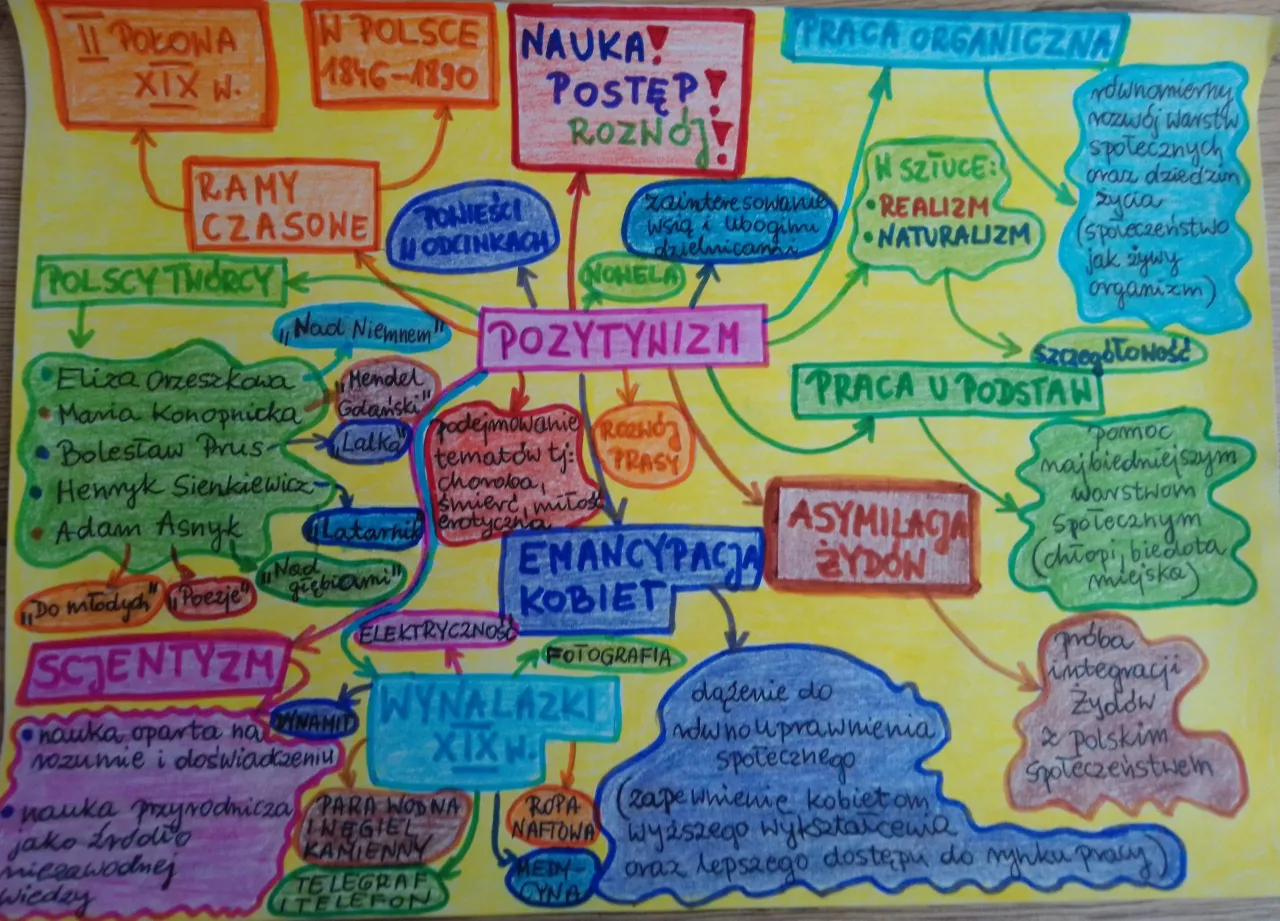 II POŁOWA
XIX w.
W POLSCE
1846-1890
NAUKA!
POSTĘP!
ROZWÓJ!
PRACA ORGANICZNA
równomierny
rozwój warstw
społecznych
oraz dziedzin
życia
(społeczeństwo
jak żywy
organizm)
RAMY
CZASOWE
POWIEŚCI
W ODCINKACH
zainteresowanie
wsią i ubogimi
dzielnicami
W SZTUCE:
• REALIZM
• NATURALIZM
SZCZEGÓŁOWOŚĆ
NOWELA
POLSCY TWÓRCY
POZYTYWIZM
• Eliza Orzeszkowa
• Maria Konopnicka
• Bolesław Prus
• Henryk Sienkiewicz
• Adam Asnyk
„Nad Niemnem"
„Mendel
Gdański"
„Lalka"
„Latarnik
„Nad
głębiami"
„Poezje"
„Do młodych"
podejmowanie
tematów tj:
choroba,
śmierć, miłość
erotyczna
ROZWÓJ
PRASY
PRACA U PODSTAW
pomoc
najbiedniejszym
warstwom
społecznym
(chłopi, biedota
miejska)
EMANCYPACJA
KOBIET
ASYMILACJA
ŻYDÓW
próba
integracji
Żydów
z polskim
społeczeństwem
dążenie do
równouprawnienia
społecznego
(zapewnienie kobietom
wyższego wykształcenia
oraz lepszego dostępu do rynku pracy)
SCJENTYZM
• nauka oparta na
rozumie i doświadczeniu
• nauka przyrodnicza
jako źródło
niezawodnej
wiedzy
WYNALAZKI
XIX w.
ELEKTRYCZNOŚĆ
FOTOGRAFIA
DYNAMIT
PARA WODNA
I WĘGIEL
KAMIENNY
TELEGRAF
I TELEFON
ROPA
NAFTOWA
MEDY-
CYNA